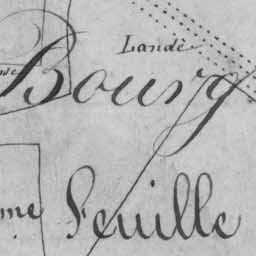 Landè
Bourg
me Feuille